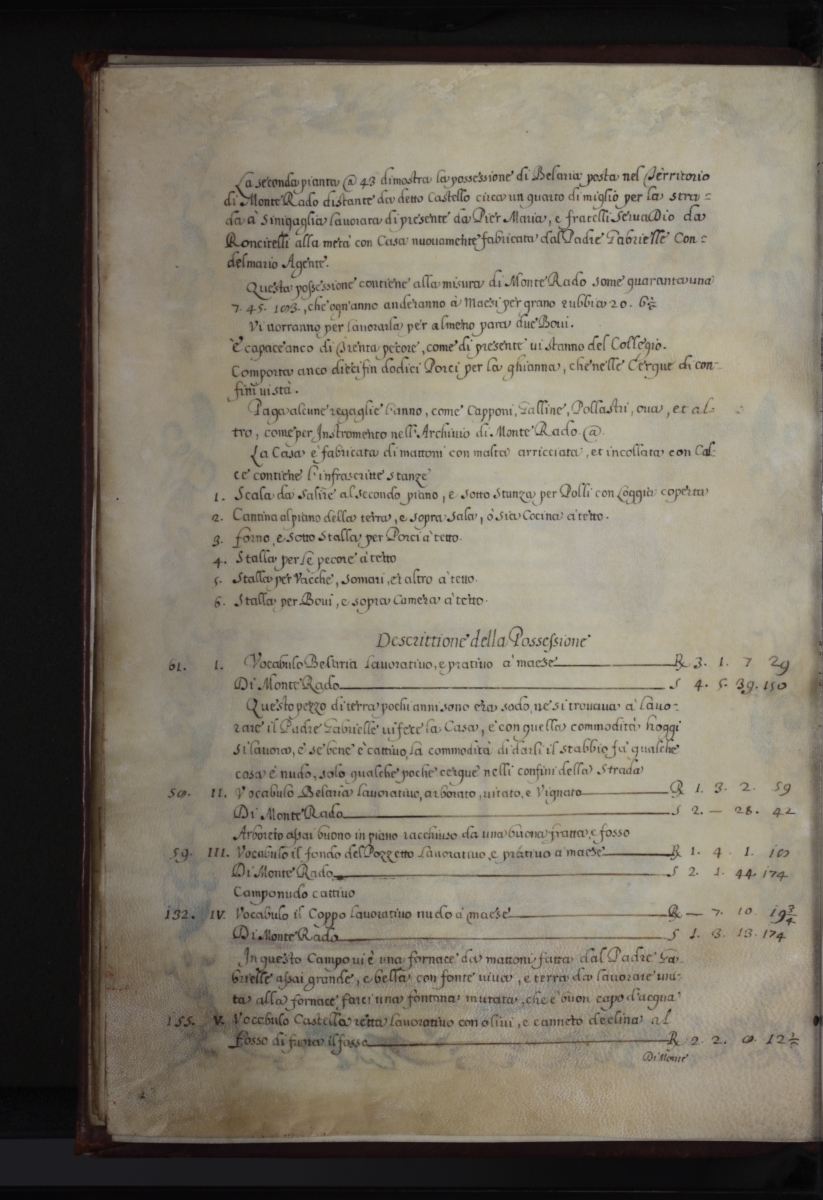 La seconda pianta @ 43 dimostra la possessione di Belaria posta nel Territorio
di Monte Rado distante da detto Castello circa un quarto di miglio per la stra=
da à Sinigaglia lavorata di presente da Pier Maria, e fratelli Servadio da
Roncitelli alla metà con Casa nuovamente fabricata dal Padre Gabrielle Con=
delmario Agente.
Questa possessione contiene alla misura di Monte Rado some quarantauna
7. 45. 103., che ogn'anno anderanno à Maesi per grano rubbia 20. 6½
Vi vorranno per lavorarla per almeno para due Bovi.
È capace anco di Trenta pecore, come di presente vi stanno del Collegio.
Comporta anco dieci fin dodici Porci per la ghianna, che nelle Cerque di con-
fini vi stà.
Paga alcune regaglie l'anno, come Capponi, Galline, Pollastri, ova, et al-
tro, come per Instromento nell'Archivio di Monte Rado @.
La Casa è fabricata di mattoni con malta arricciata, et incollata con Cal-
ce contiene l'infrascritte stanze
1. Scala da salire al secondo piano, e sotto Stanza per Polli con Loggia coperta
2. Cantina al piano della terra, e sopra Sala, ò sia Cocina à tetto.
3. forno, e sotto Stalla per Porci à tetto.
4. Stalla per le pecore à tetto
5. Stalla per Vacche, Somari, et altro à tetto.
6. Stalla per Bovi, e sopra Camera à tetto.
Descrittione della Possessione
61. I. Vocabulo Belaria Lavorativo, e prativo à maese R 3. 1. 7 29
Di Monte Rado S 4. 5. 39. 150
Questo pezzo di terra pochi anni sono era sodo, ne si trovava à lavo-
rare il Padre Gabrielle vi fece la Casa, e con quella commodità hoggi
si lavora, e se bene è cattivo, la commodità di darli il stabbio fà qualche
cosa è nudo, solo qualche poche cerque nelli confini della Strada
50. II. Vocabulo Belaria lavorativo, arborato, vitato, e Vignato R 1. 3. 2. 59
Di Monte Rado S 2. — 28. 42
Arboreto assai buono in piano racchiuso da una buona fratta, e fosso
59. III. Vocabulo il fondo del Pozzetto Lavorativo, e prativo à maese R 1. 4. 1. 107
Di Monte Rado S 2. 1. 44. 174
Campo nudo cattivo
132. IV. Vocabulo il Coppo lavorativo nudo à maese R — 7. 10. 19¾
Di Monte Rado S 1. 3. 13. 174
In questo Campo vi è una fornace da mattoni fatta dal Padre Ga-
brielle assai grande, e bella con fonte viva, e terra da lavorare uni-
ta alla fornace farci una fontana murata, che è buon capo d'acqua
155. V. Vocabulo Castellaretta lavorativo con olivi, e canneto declina al
Fosso di fuora il fosso R 2. 2. 0. 12½
Di Monte